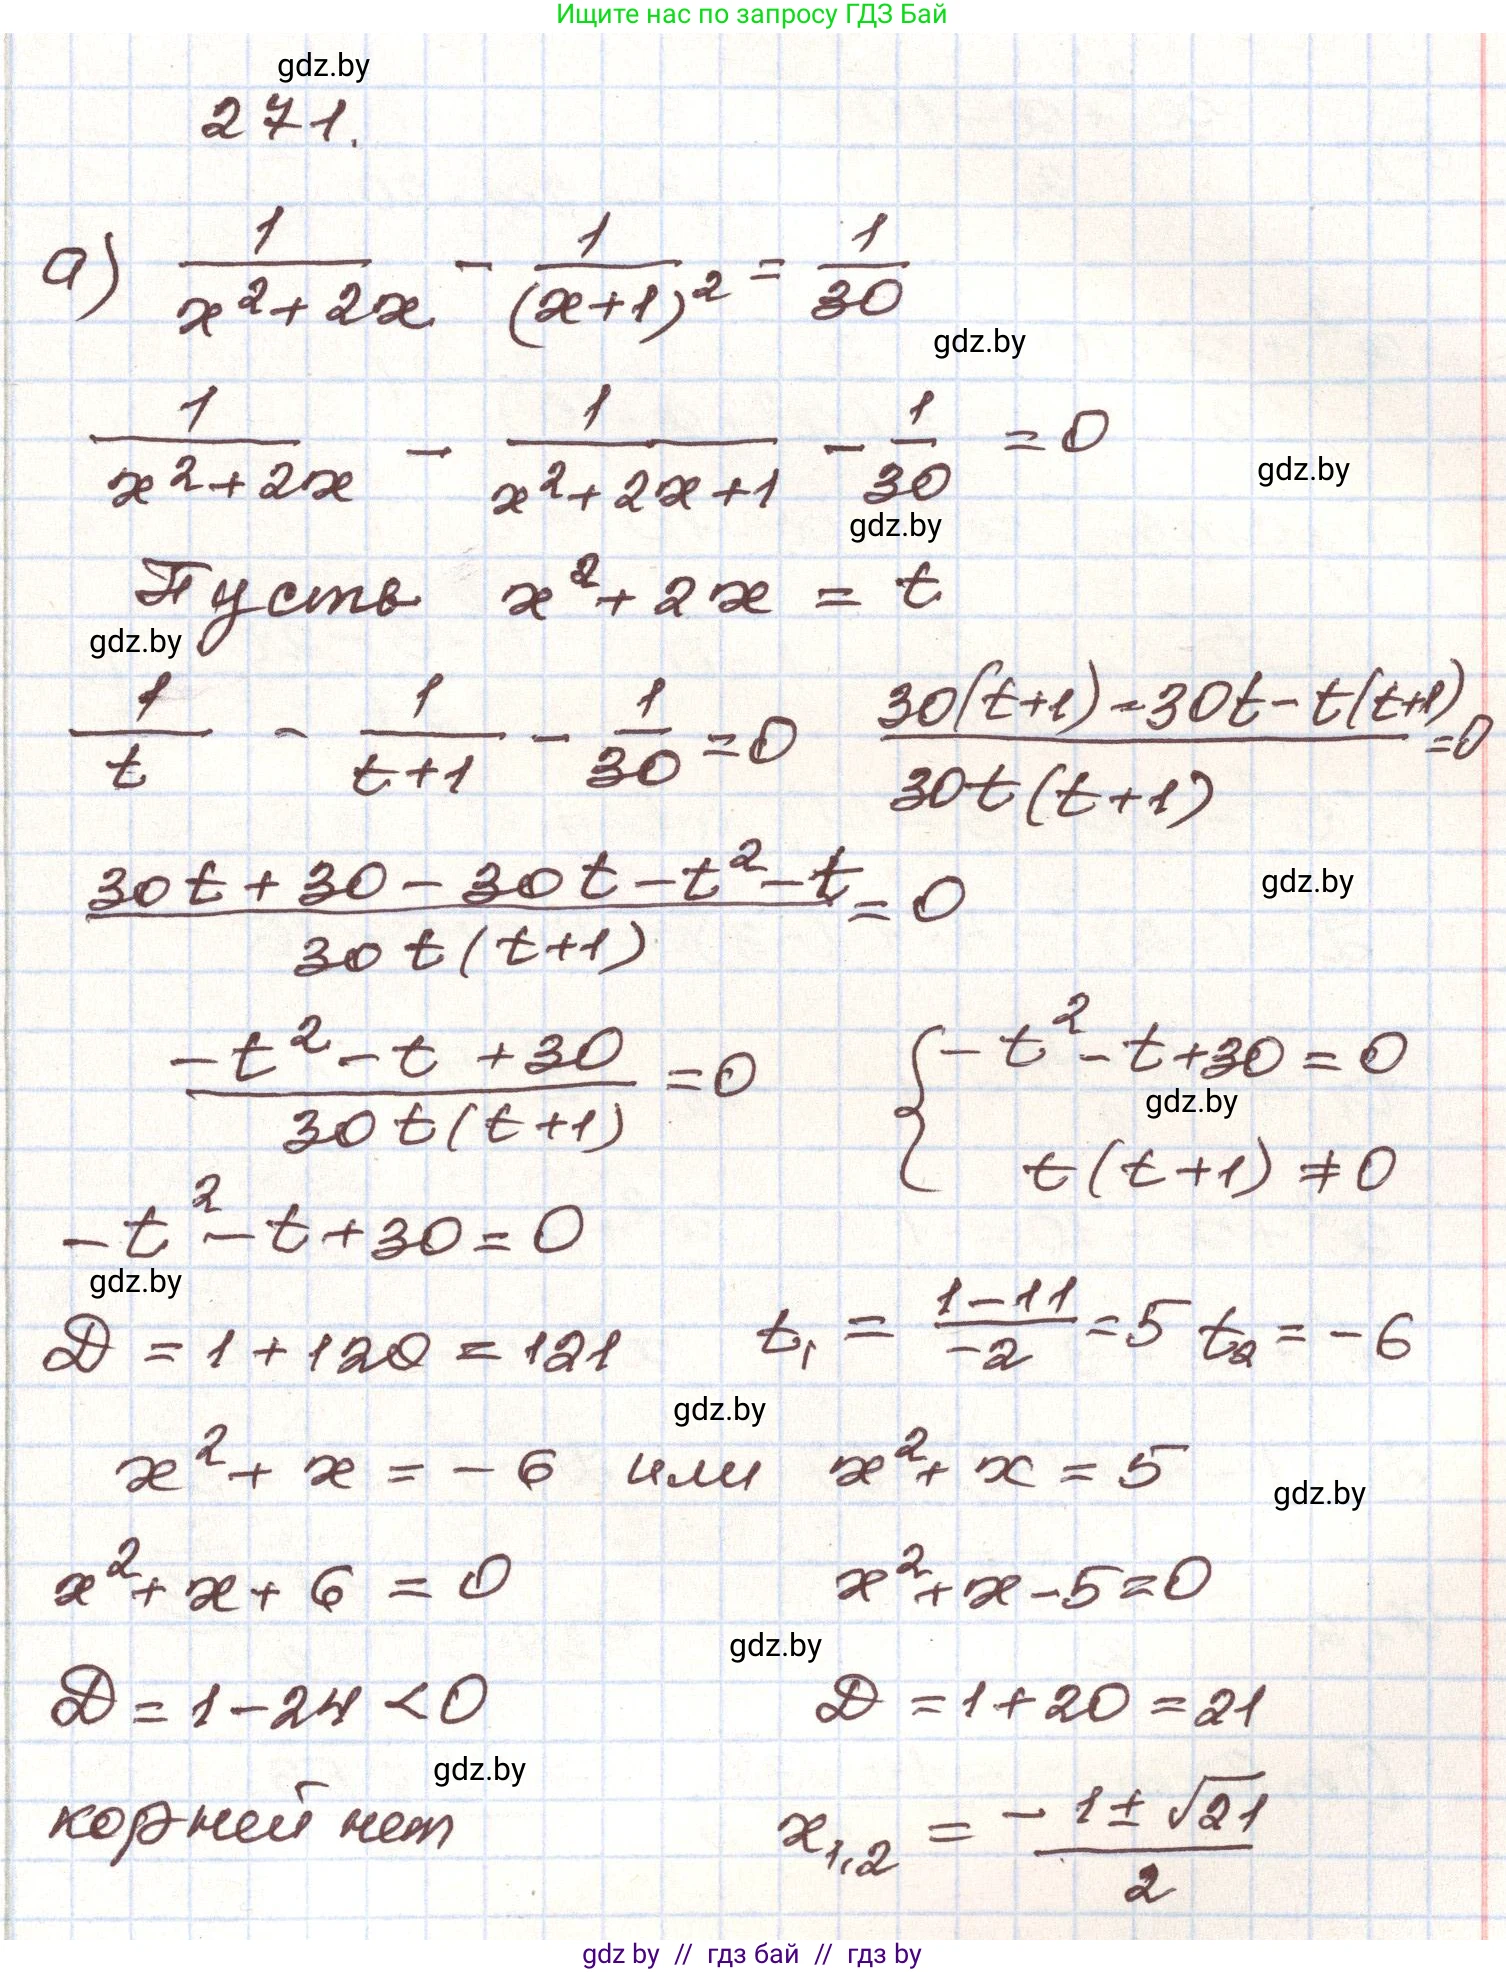 Ищите нас по запросу ГДЗ Бай
gdz.by
271.
а) 1/(x²+2x) - 1/(x+1)² = 1/30
gdz.by
1/(x²+2x) - 1/(x²+2x+1) - 1/30 = 0
gdz.by
gdz.by
Пусть x²+2x = t
gdz.by
1/t - 1/(t+1) - 1/30 = 0 (30(t+1)-30t-t(t+1))/(30t(t+1)) = 0
(30t+30-30t-t²-t)/(30t(t+1)) = 0
gdz.by
(-t²-t+30)/(30t(t+1)) = 0 { -t²-t+30=0
gdz.by
t(t+1) ≠ 0
-t²-t+30=0
gdz.by
D = 1+120 = 121 t₁ = (1-11)/(-2) = 5 t₂ = -6
gdz.by
x²+x = -6 или x²+x = 5
gdz.by
x²+x+6 = 0 x²+x-5=0
gdz.by
D = 1-24 < 0 D = 1+20 = 21
gdz.by
корней нет x₁,₂ = (-1±√21)/2
gdz by // гдз бай // гдз by